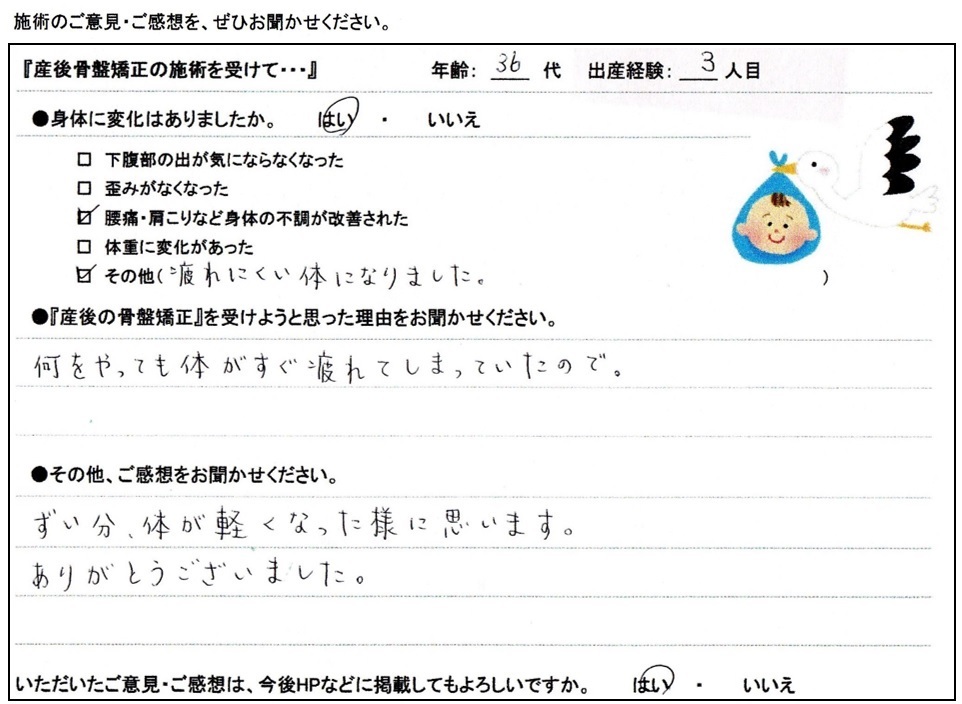 施術のご意見・ご感想を、ぜひお聞かせください。
『産後骨盤矯正の施術を受けて・・・』 年齢: 36 代 出産経験: 3 人目
●身体に変化はありましたか。 はい ・ いいえ
□ 下腹部の出が気にならなくなった
□ 歪みがなくなった
☑ 腰痛・肩こりなど身体の不調が改善された
□ 体重に変化があった
☑ その他(疲れにくい体になりました。)
●『産後の骨盤矯正』を受けようと思った理由をお聞かせください。
何をやっても体がすぐ疲れてしまっていたので。
●その他、ご感想をお聞かせください。
ずい分、体が軽くなった様に思います。
ありがとうございました。
いただいたご意見・ご感想は、今後HPなどに掲載してもよろしいですか。 はい ・ いいえ